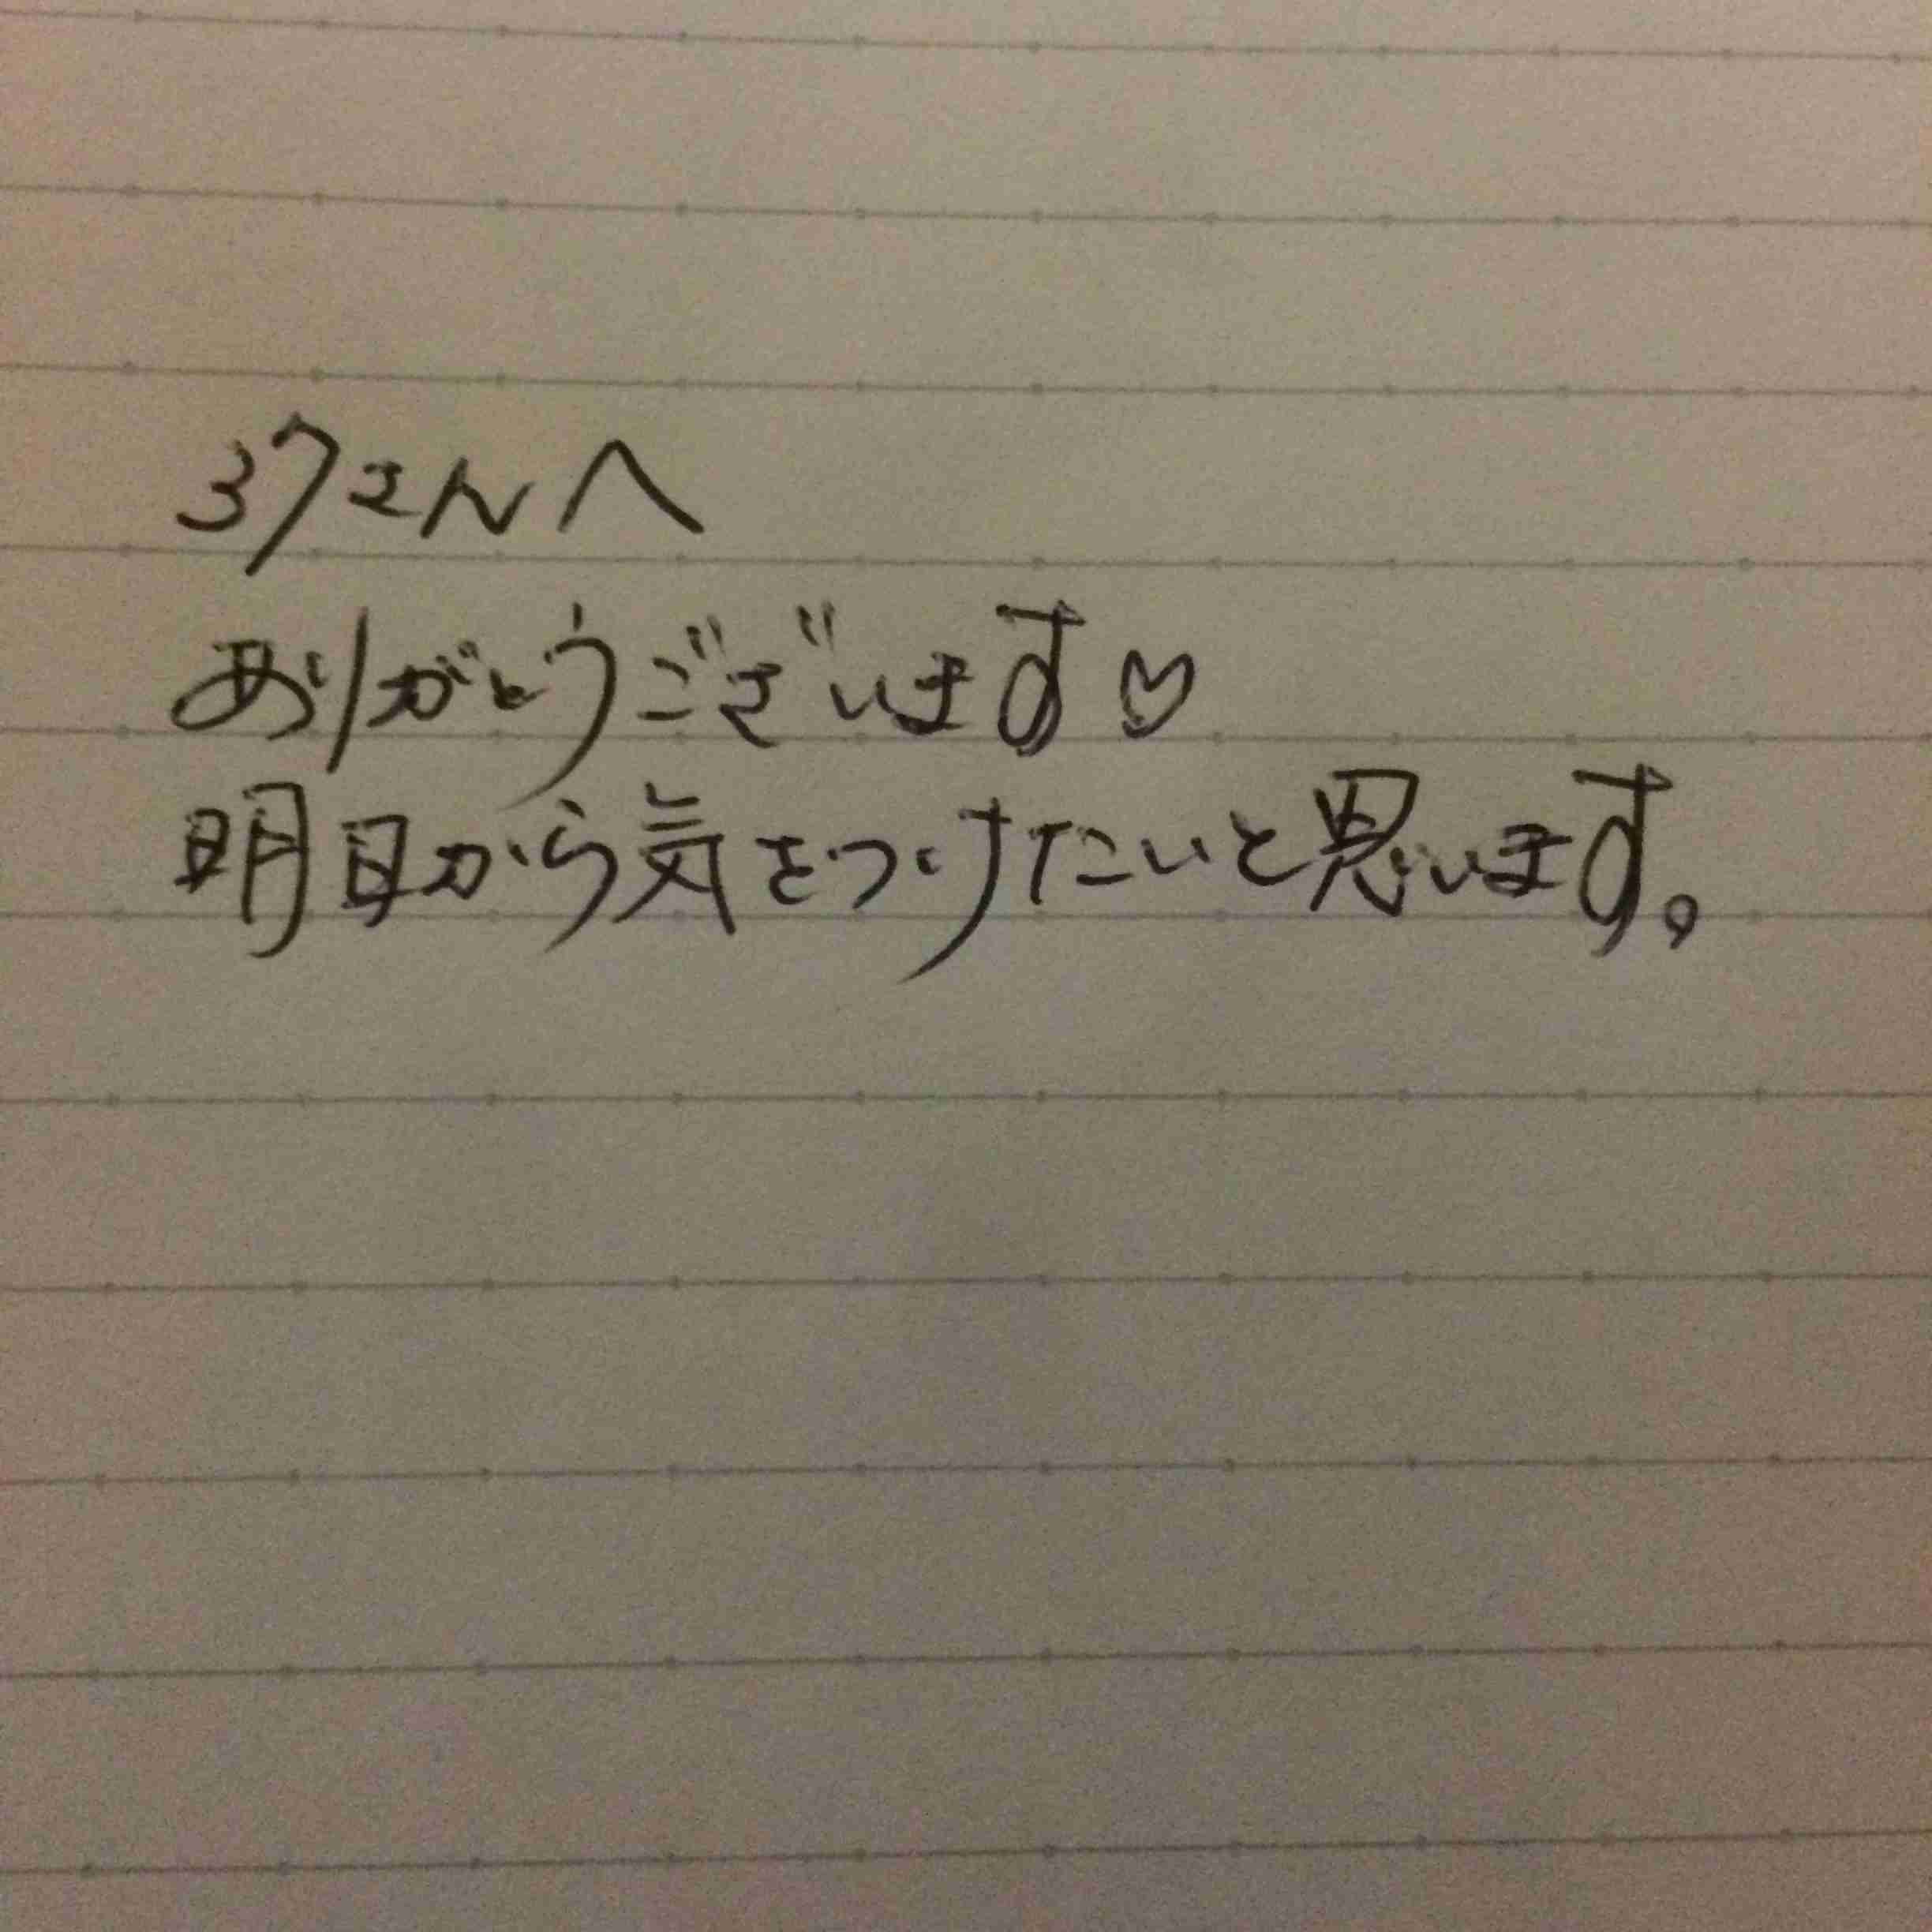 37さんへ
ありがとうございます♡
明日から気をつけたいと思います。